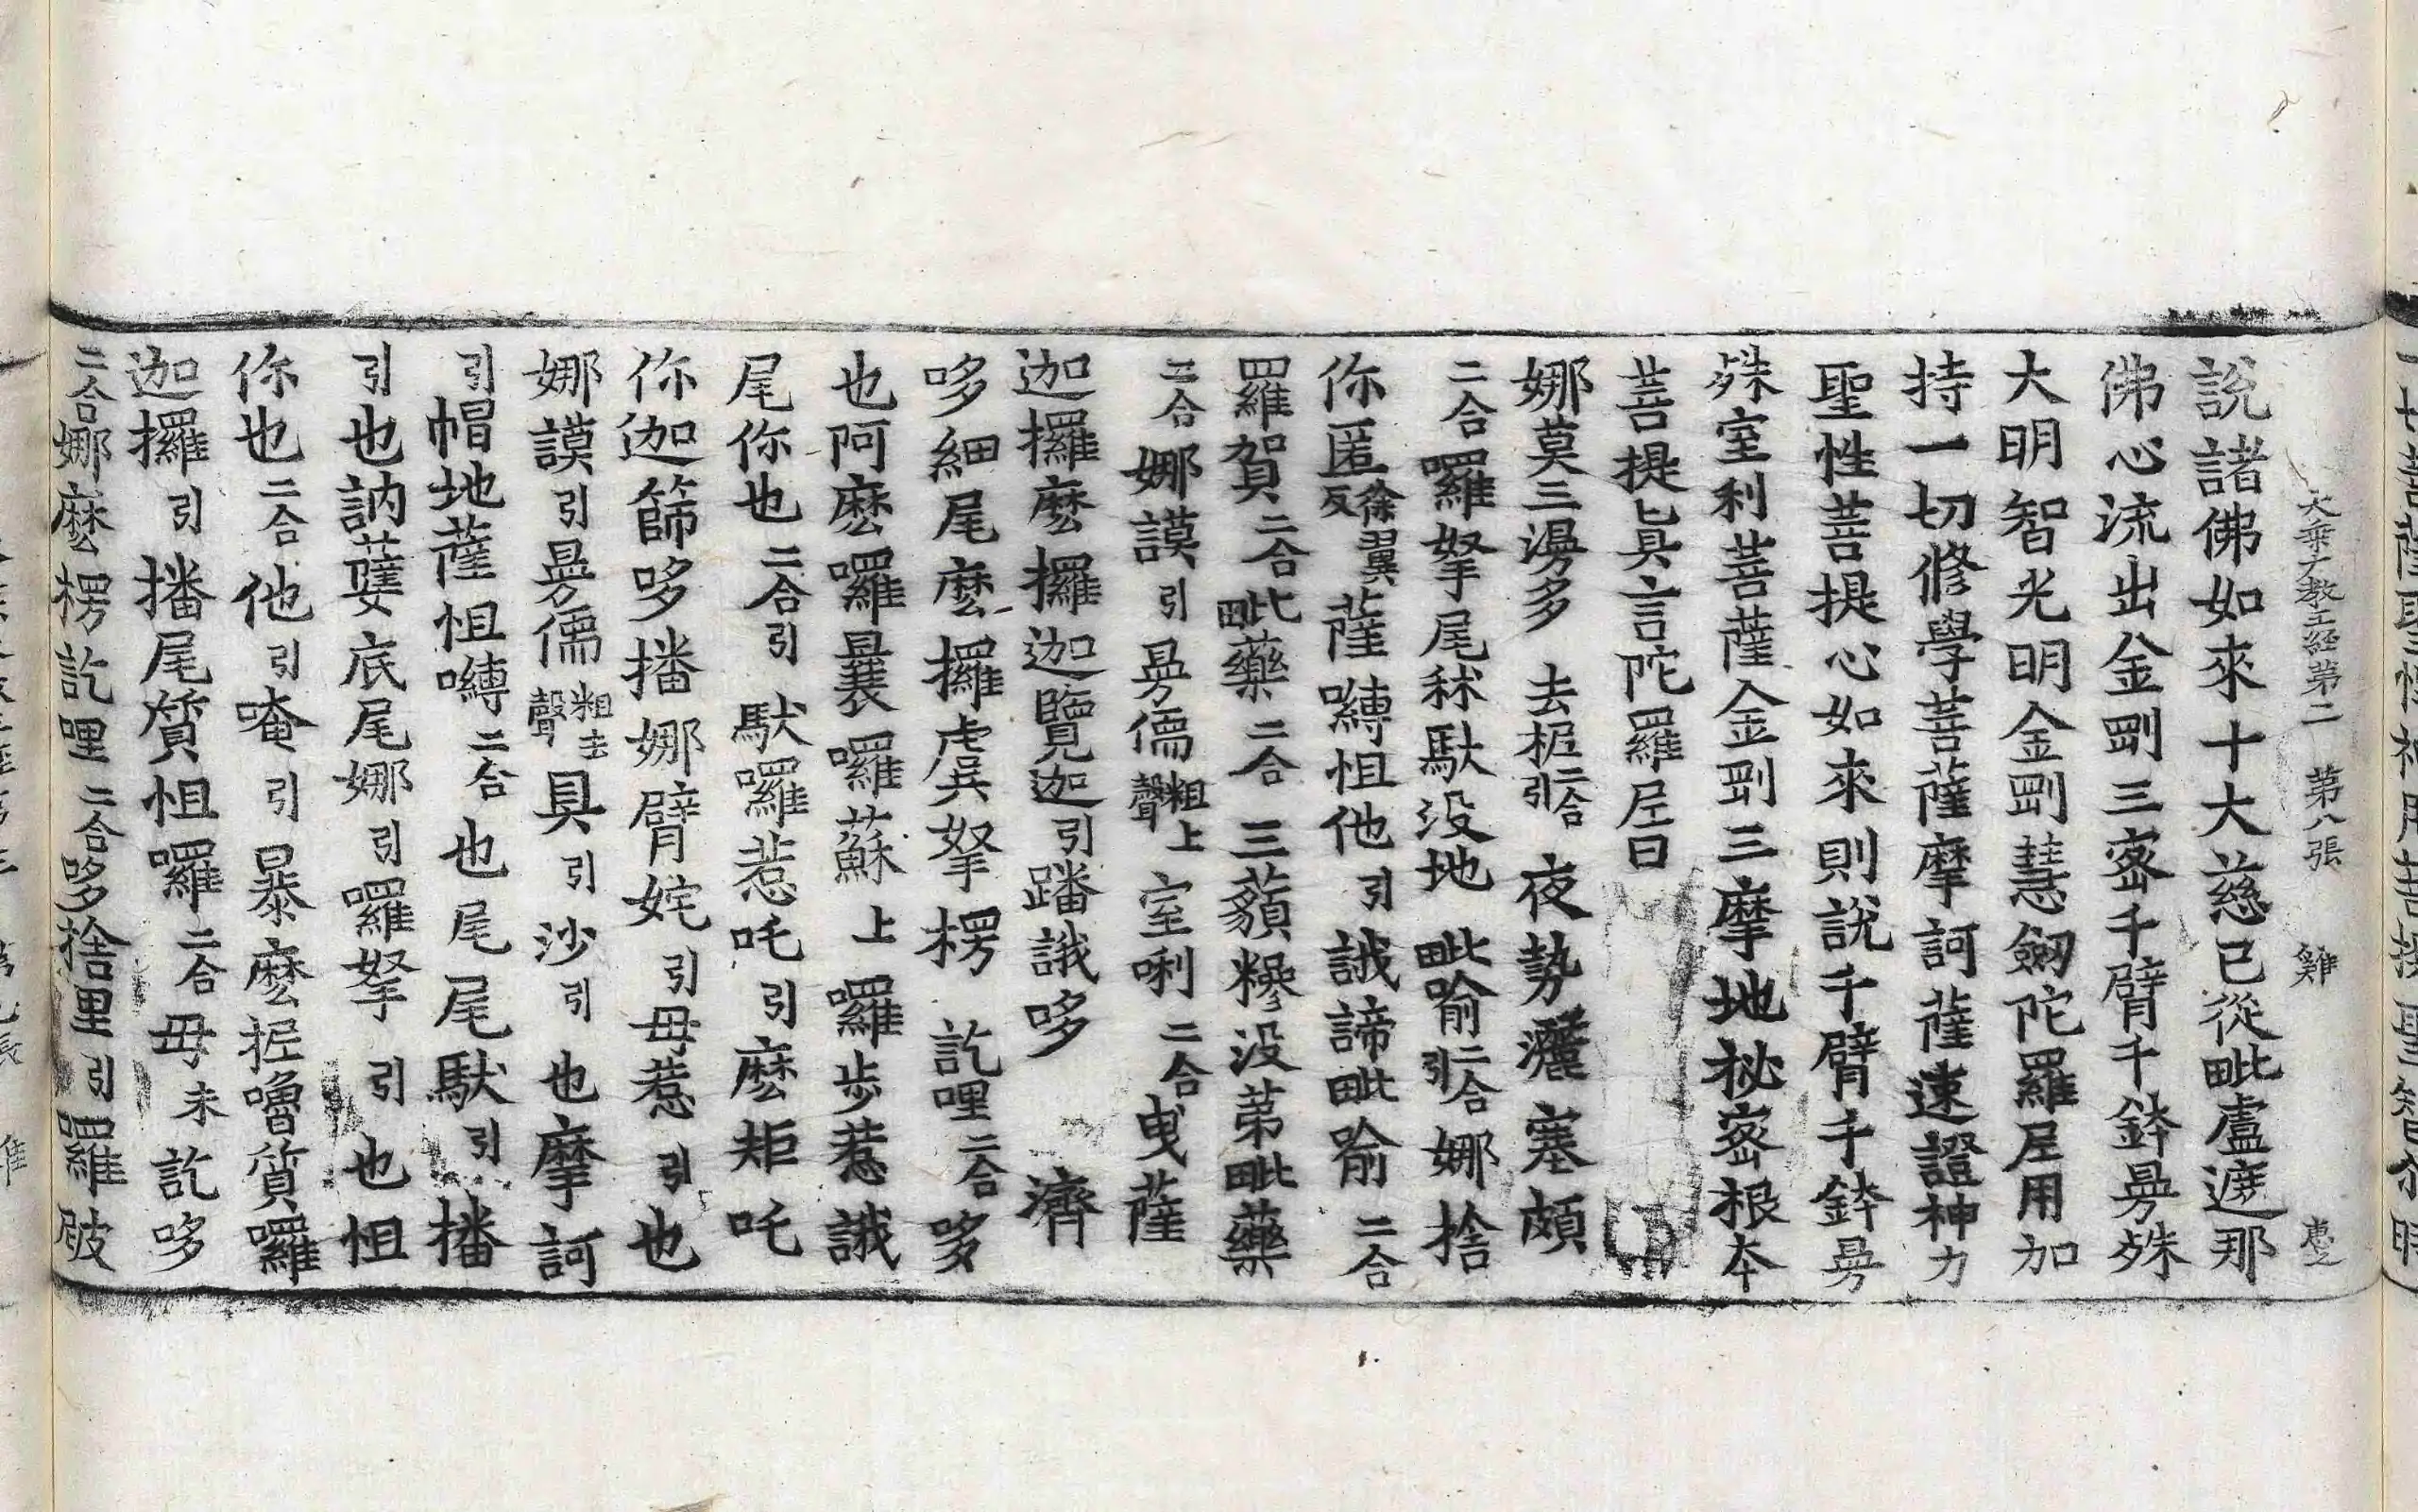 大乘大教王経第二 第八張 雞
說諸佛如來十大慈已從毗盧遮那
佛心流出金剛三密千臂千鉢曼殊
大明智光明金剛慧劒陀羅尼用加
持一切修學菩薩摩訶薩速證神力
聖性菩提心如來則說千臂千鉢曼
殊室利菩薩金剛三摩地秘密根本
菩提真言陀羅尼曰
娜莫三漫多 去柅二合引 夜勢灑塞頗
二合囉拏尾秫馱没地 毗喻二合引娜捨
你匿徐翼反薩嚩怛他引誐諦毗喻二合
羅賀二合毗藥二合三藐糝没第毗藥
二合娜謨引曼儒上聲室唎二合曳薩
迦攞麽攞迦覽迦引蹯誐哆 濟
哆細尾麽攞虞拏楞 訖哩二合哆
也阿麽囉曩囉蘇上囉歩惹誐
尾你也二合引馱囉惹吒引麽矩吒
你迦篩哆播娜臂姹引毋惹引也
娜謨引曼儒粗去聲具引沙引也摩訶
引帽地薩怛嚩二合也尾尾馱引播
引也訥蘖底尾娜引囉拏引也怛
你也二合他引唵引暴麽柅嚕質囉
迦攞引播尾質怛囉二合毋末訖哆
二合娜麽楞訖哩二合哆捨里引羅